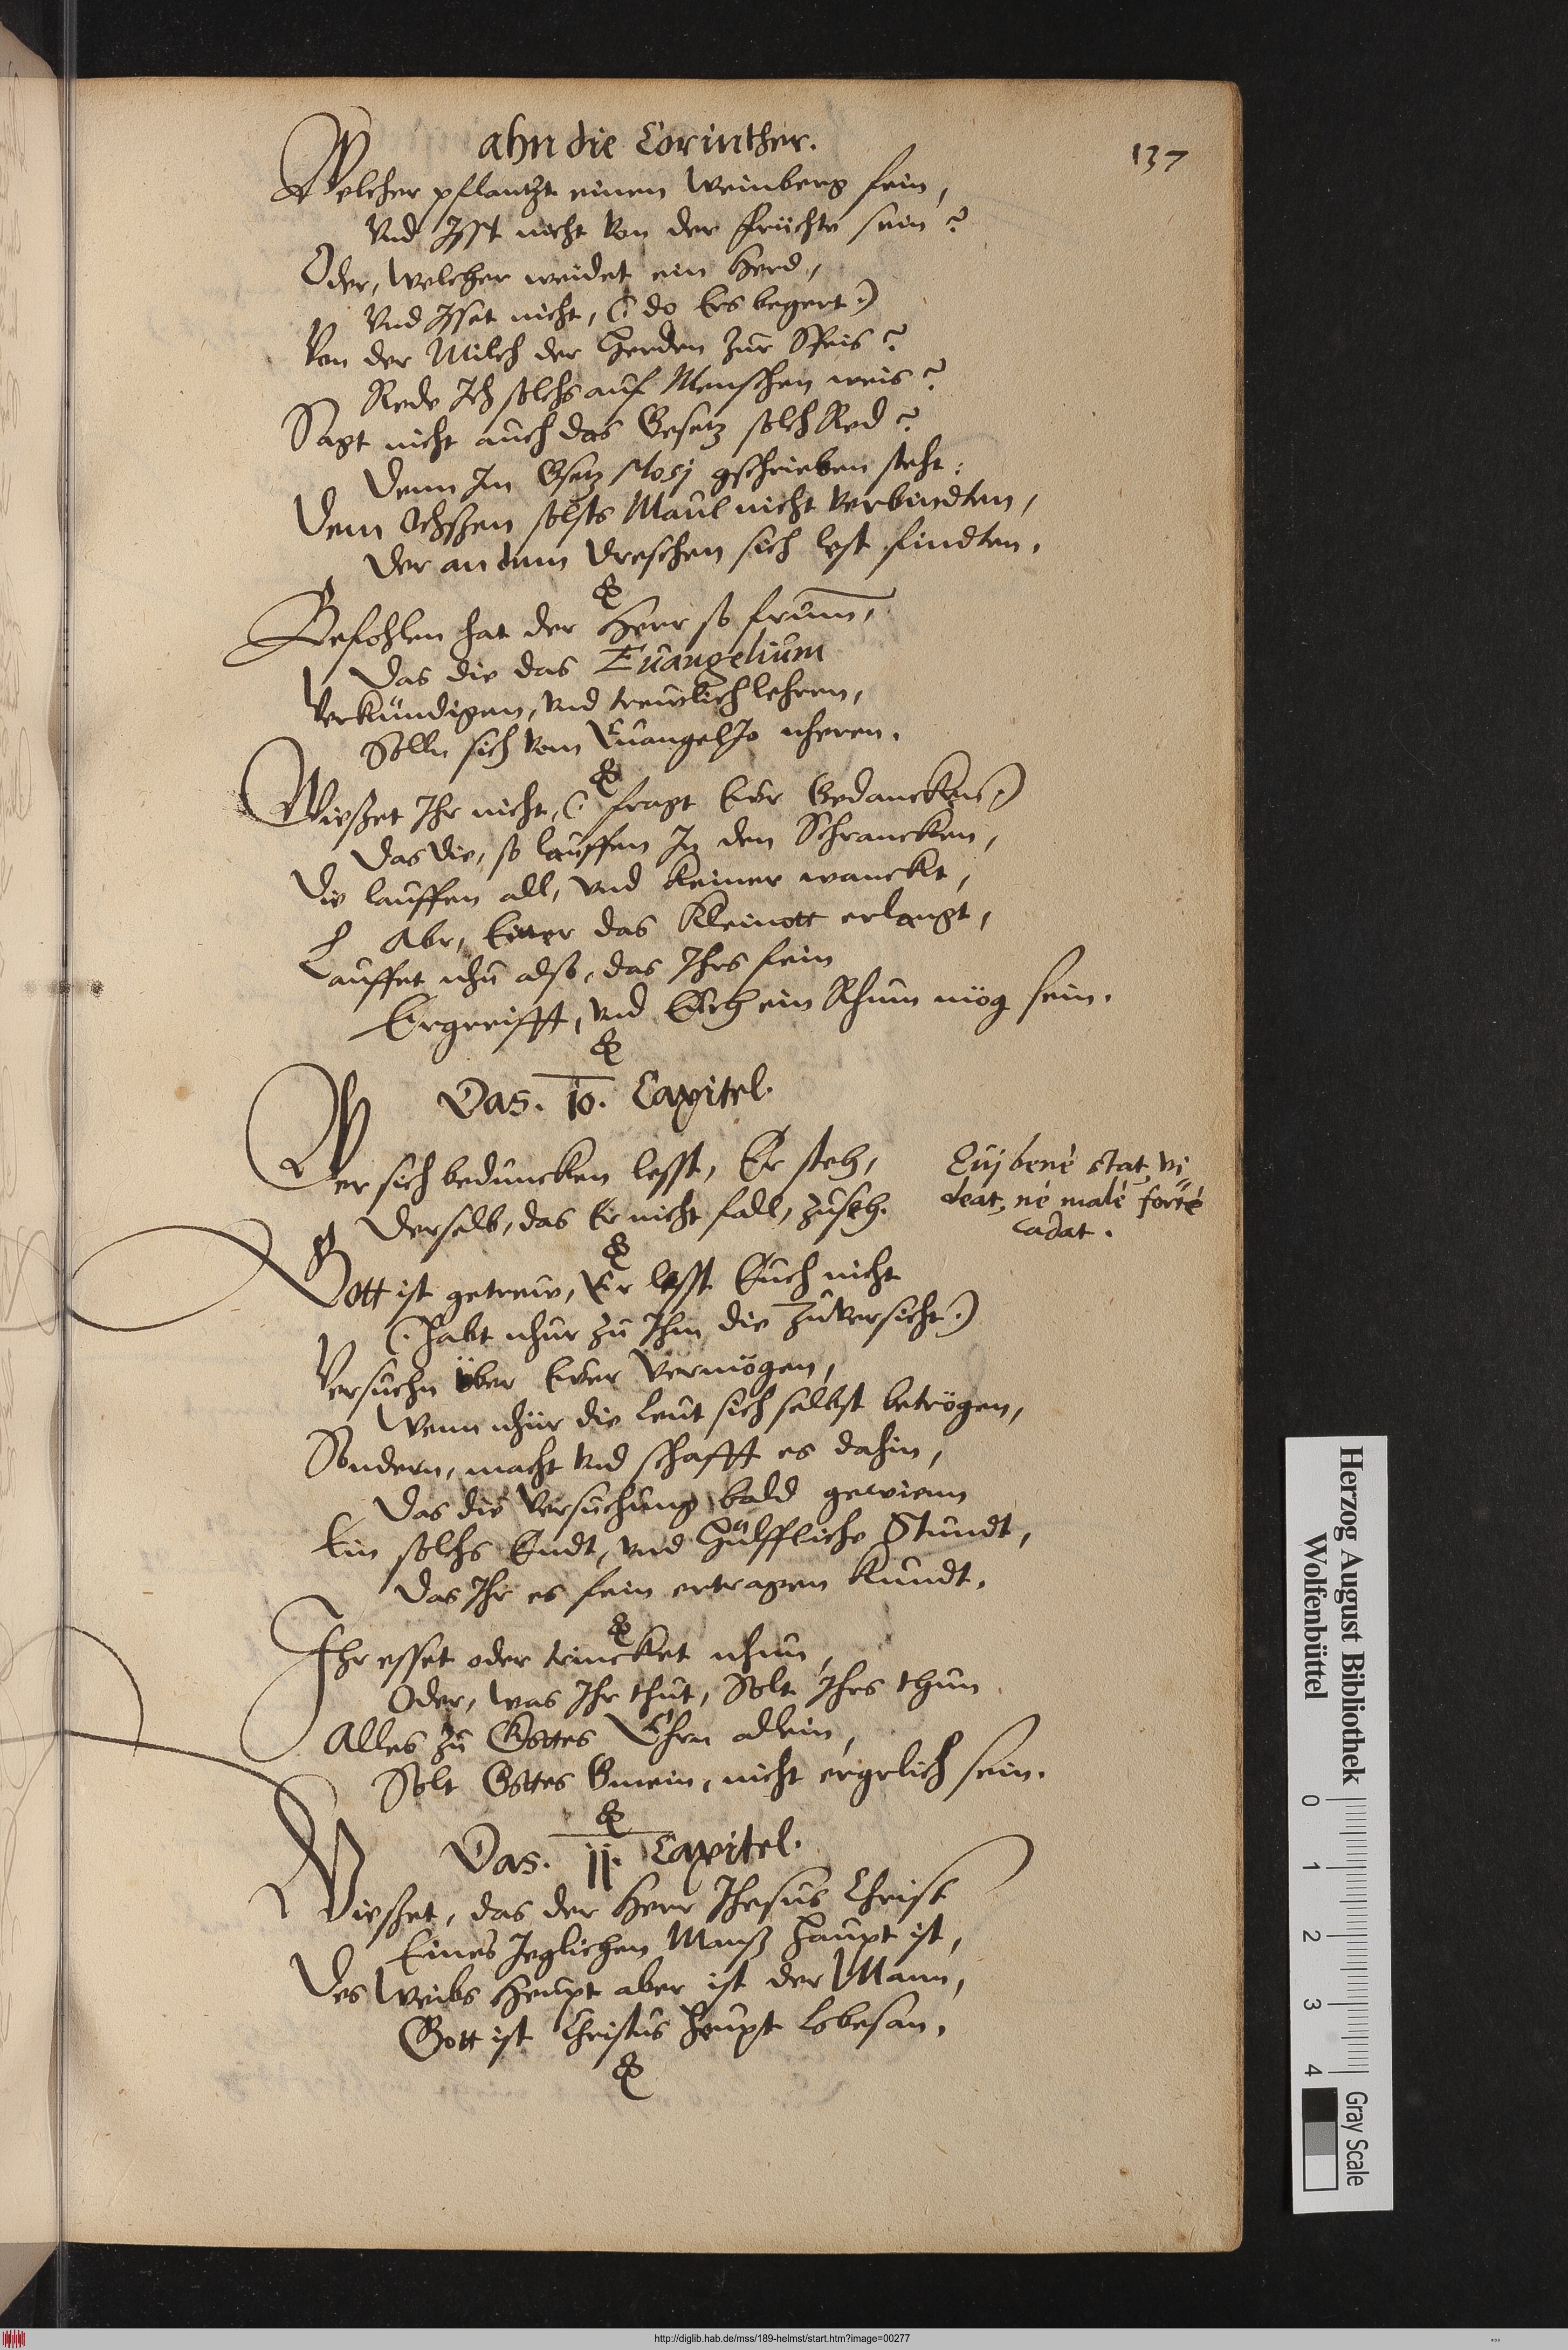 ahn die Corinther.
137
Welcher pflantzt einen Weinberg fein,
Vnd Isst nicht von der früchte sein?
Oder, welcher weidet ein Herd,
Vnd Isset nicht, (: do Ers begert:)
Von der Milch der Herden zur Speis?
Rede Ich solchs auf Menschen weis?
Sagt nicht auch das Gesetz solch Red?
Denn Im Gsetz Mosj gschrieben steht:
Dem Ochssen solsts Maul nicht verbindten,
Der an dem Dreschen sich lest findten.
Befohlen hat der Herr so frum̄,
Das die das Euangelium
Verkündigen, vnd treuwlich lehren,
Solln sich vom EuangelIo nheren.
Wießet Ihr nicht, (: fragt Eur Gedancken:)
Das die, so lauffen In den Schrancken,
Die lauffen all, vnd keiner wanckt,
Abr, Einer das Kleinott erlangt,
Lauffet nhu also, das Ihrs fein
Ergreifft, vnd Euch ein Rhum mög sein.
Das. 10. Capitel.
Wer sich beduncken lesst, Er steh,
Derselb, das Er nicht fall, zuseh.
Cuj bene stat, vi
deat, ne male forte
cadat.
Gott ist getreuw, Er lesst Euch nicht
(: habt nhur zu Ihm die Zuversicht:)
Versuchn über Euer Vermögen,
Wenn nhur die Leut sich selbst betrögen,
Sondern, macht vnd schafft es dahin,
Das die Versuchung bald gewienn
Ein solchs Endt, vnd hülffliche Stundt,
Das Ihr es fein ertragen kundt.
Ihr esset oder trincket nhun,
Oder, was Ihr thut, Solt Ihrs thun
Alles zu Gottes Ehrn allein,
Solt Gottes Gmein, nicht ergrlich sein.
Das. 11. Capitel.
Wießet, das der Herr Jhesus Christ
Eines Jeglichen Manß Haupt ist,
Des Weibs Heupt aber ist der Mann,
Gott ist Christus Heupt lobesan.
Herzog August Bibliothek
Wolfenbüttel
0 1 2 3 4
Gray Scale
http://diglib.hab.de/mss/189-helmst/start.htm?image=00277